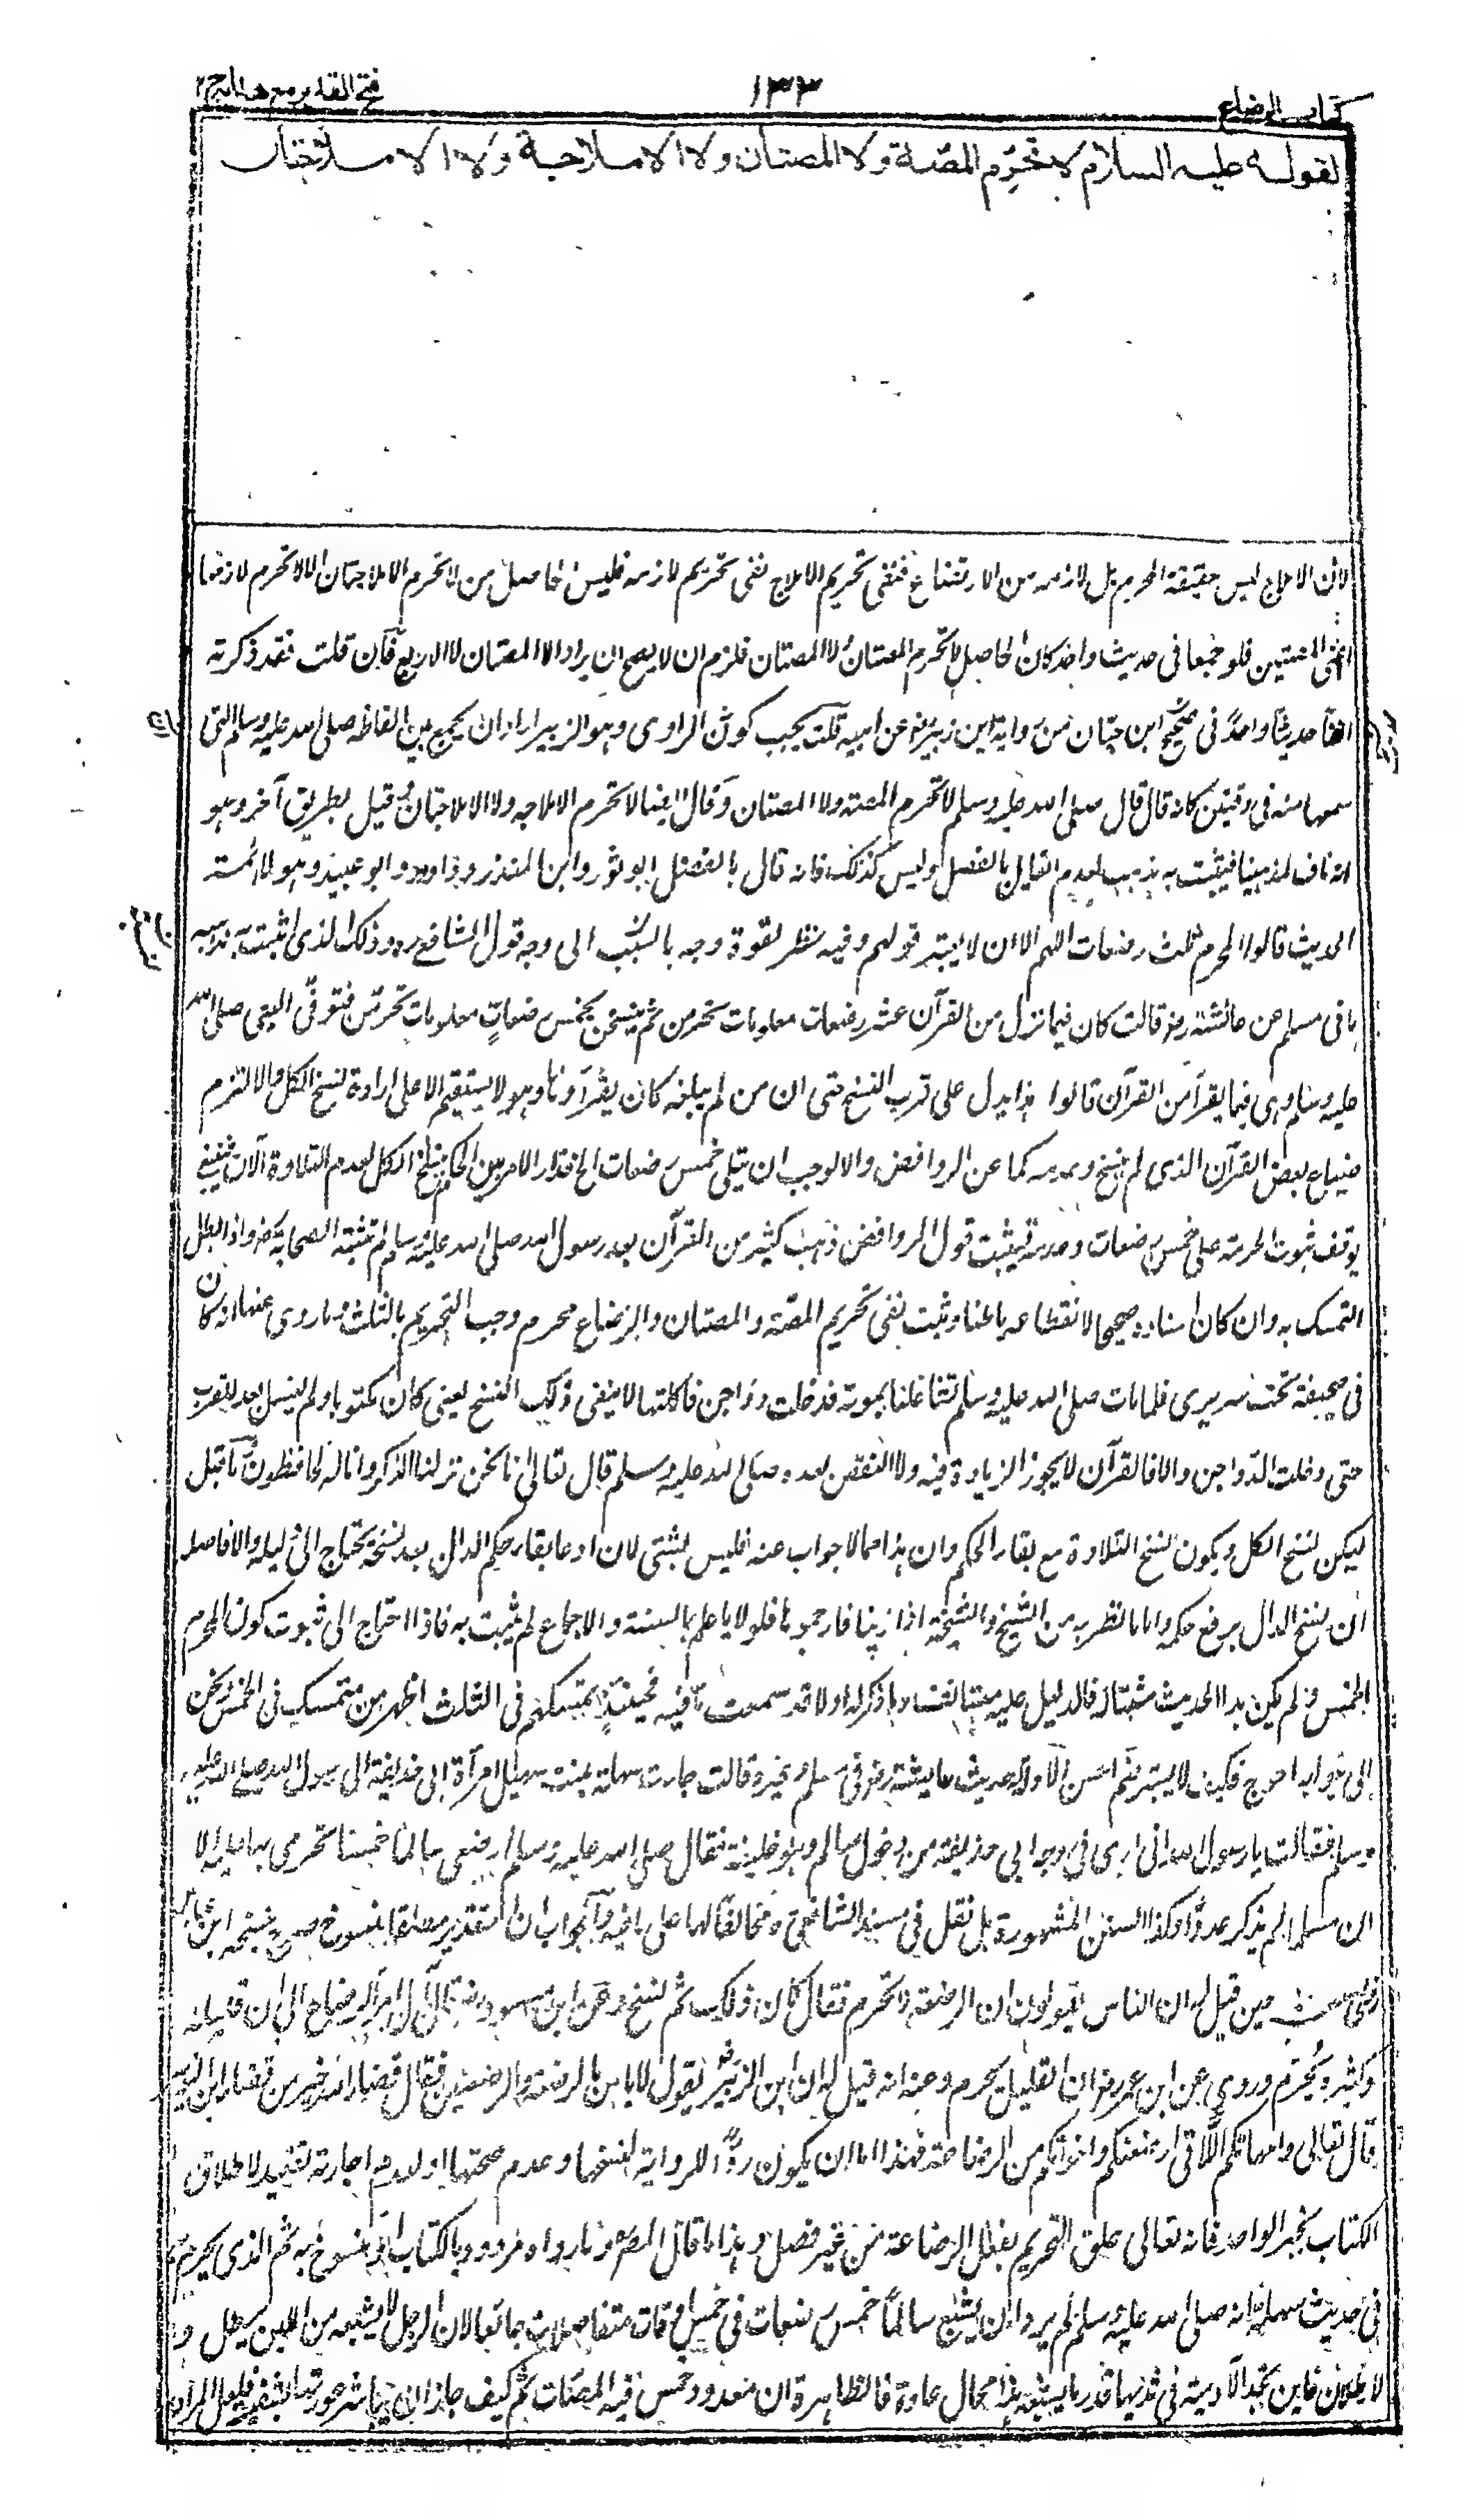 كتاب الرضاع
١٣٣
فتح القدير مع هدايه ج٢
لقوله عليه السلام لا تحرم المصة ولا المصتان ولا الاملاجة ولا الاملاجتان
لان الاملاج ليس حقيقة المحرم بل لازمه من الارتضاع فنفى تحريم الاملاج نفى تحريم لازمه فليس الحاصل من لا تحرم الاملاجتان الا لا تحرم لازمها
اعنى المصتين فلو جمعا فى حديث واحد كان الحاصل لا تحرم المصتان ولا المصتان فلزم ان لا يصح ان يراد الا المصتان لا الاربع فان قلت فقد ذكرته
ايضا حديثا واحدا فى صحيح ابن حبان من رواية ابن زبير رض عن ابيه قلت يجب كون الراوى وهو الزبير اراد ان يجمع بين الفاظه صلى الله عليه وسلم التى
سمعها منه فى وقتين كانه قال قال صلى الله عليه وسلم لا تحرم المصة ولا المصتان وقال ايضا لا تحرم الاملاجه ولا الاملاجتان وقيل بطريق آخر وهو
انه ناف لمذهبنا فيثبت به مذهبه لعدم القايل بالفصل وليس كذلك فانه قال بالفصل ابو ثور وابن المنذر وداود وابو عبيد وهولا ائمة
الحديث قالوا المحرم ثلث رضعات اللهم الا ان لا يعتبر قولهم وفيه نظر لقوة وجهه بالنسب الى وجه قول الشافعى ره وذلك الذى اثبت به مذهبه
ما فى مسلم عن عائشة رض قالت كان فيما نزل من القرآن عشر رضعات معلومات يحرمن ثم نسخن بخمس رضعات معلومات يحرمن فتوفى النبى صلى الله
عليه وسلم وهى فيما يقرأ من القرآن قالوا هذا يدل على قرب النسخ حتى ان من لم يبلغه كان يقرأونا وهو لا يستقيم الا على ارادة نسخ الكل والا لزم
ضياع بعض القرآن الذى لم ينسخ وعدمه كما عن الروافض والا لوجب ان تتلى خمس رضعات الخ فقدار الامر بين الحكم بنسخ الكل لعدم التلاوة الآن
يوقف ثبوت الحرمة على خمس رضعات وعدمه فيثبت قول الروافض ذهب كثير من القرآن بعد رسول الله صلى الله عليه وسلم لم تثبته الصحابة رض واذ ابطل
التمسك به وان كان اسناده صحيحا لانقطاعه باطنا وثبت نفى تحريم المصة والمصتان والرضاع محرم وجب التحريم بالثلث وما روى عنها انه كان
فى صحيفة تحت سريرى فلما مات صلى الله عليه وسلم تشاغلنا بموته فدخلت دواجن فاكلتها لا ينفى ذلك النسخ يعنى كان مكتوبا ولم يغسل بعد للقرب
حتى دخلت الدواجن والا فالقرآن لا يجوز الزيادة فيه ولا النقص بعده صلى الله عليه وسلم قال تعالى انا نحن نزلنا الذكر وانا له لحافظون وما قيل
ليكن نسخ الكل ويكون نسخ التلاوة مع بقاء الحكم وان هذا مما لا جواب عنه فليس بشئى لان ادعا بقاء حكم الدال بعد نسخه يحتاج الى دليل والا فالاصل
ان نسخ الدال يرفع حكمه واما ما نظر به من الشيخ والشيخة اذا زنيا فارجموهما فلولا ما علم بالسنة والاجماع لم يثبت به فاذا احتاج الى ثبوت كون المحرم
الخمس ولم يكن هذا الحديث مثبتا له فالدليل عليه ما ذكر اولا قد سمعت ما فيه فحينئذ متمسكهم فى الثلث اظهر من متمسك فى الخمس ونحن
الى جوابه احوج فكيف لا يعتبر نعم احسن الادلة حديث عايشة رض فى مسلم وغيره قالت جاءت سهلة بنت سهيل امرأة ابى حذيفة الى رسول الله صلى الله عليه
وسلم فقالت يا رسول الله انى ارى فى وجه ابى حذيفة من دخول سالم وهو حليفه فقال صلى الله عليه وسلم ارضعى سالما خمسا تحرمى بها عليه الا
ان مسلما لم يذكر عددا وكذا السنن المشهورة بل نقل فى مسند الشافعى مخالفا لها على ما فيه والجواب ان التقدير مطلقا منسوخ صرح بنسخه ابن عباس
رضى الله عنه حين قيل له ان الناس يقولون ان الرضعة لا تحرم فقال كان ذلك ثم نسخ وعن ابن مسعود رض قال آل امر الرضاع الى ان قليله
وكثيره يحرم وروى عن ابن عمر رض ان القليل يحرم وعنه انه قيل له ان ابن الزبير يقول لا باس بالرضعة والرضعتين فقال قضاء الله خير من قضاء ابن الزبير
قال تعالى وامهاتكم اللاتى ارضعنكم واخواتكم من الرضاعة فهذا اما ان يكون ردا للرواية لنسخها وعدم صحتها او لعدم اجازته تقييد اطلاق
الكتاب بخبر الواحد فانه تعالى علق التحريم بفعل الرضاعة من غير فصل وهذا ما قال المص وما رواه مردود بالكتاب او منسوخ به ثم الذى يجزم
فى حديث سهلة انه صلى الله عليه وسلم لم يرد ان يشبع سالما خمس رضعات فى خمس اوقات متفاصلات جائعا لان الرجل لا يشبعه من اللبن رطل و
لا رطلان فاين تجد الآدمية فى ثديها قدر ما يشبعه هذا محال عادة فالظاهر ان معدود خمس فيه المصات ثم كيف جاز ان يباشر عورتها بشفتيه فلعل المراد